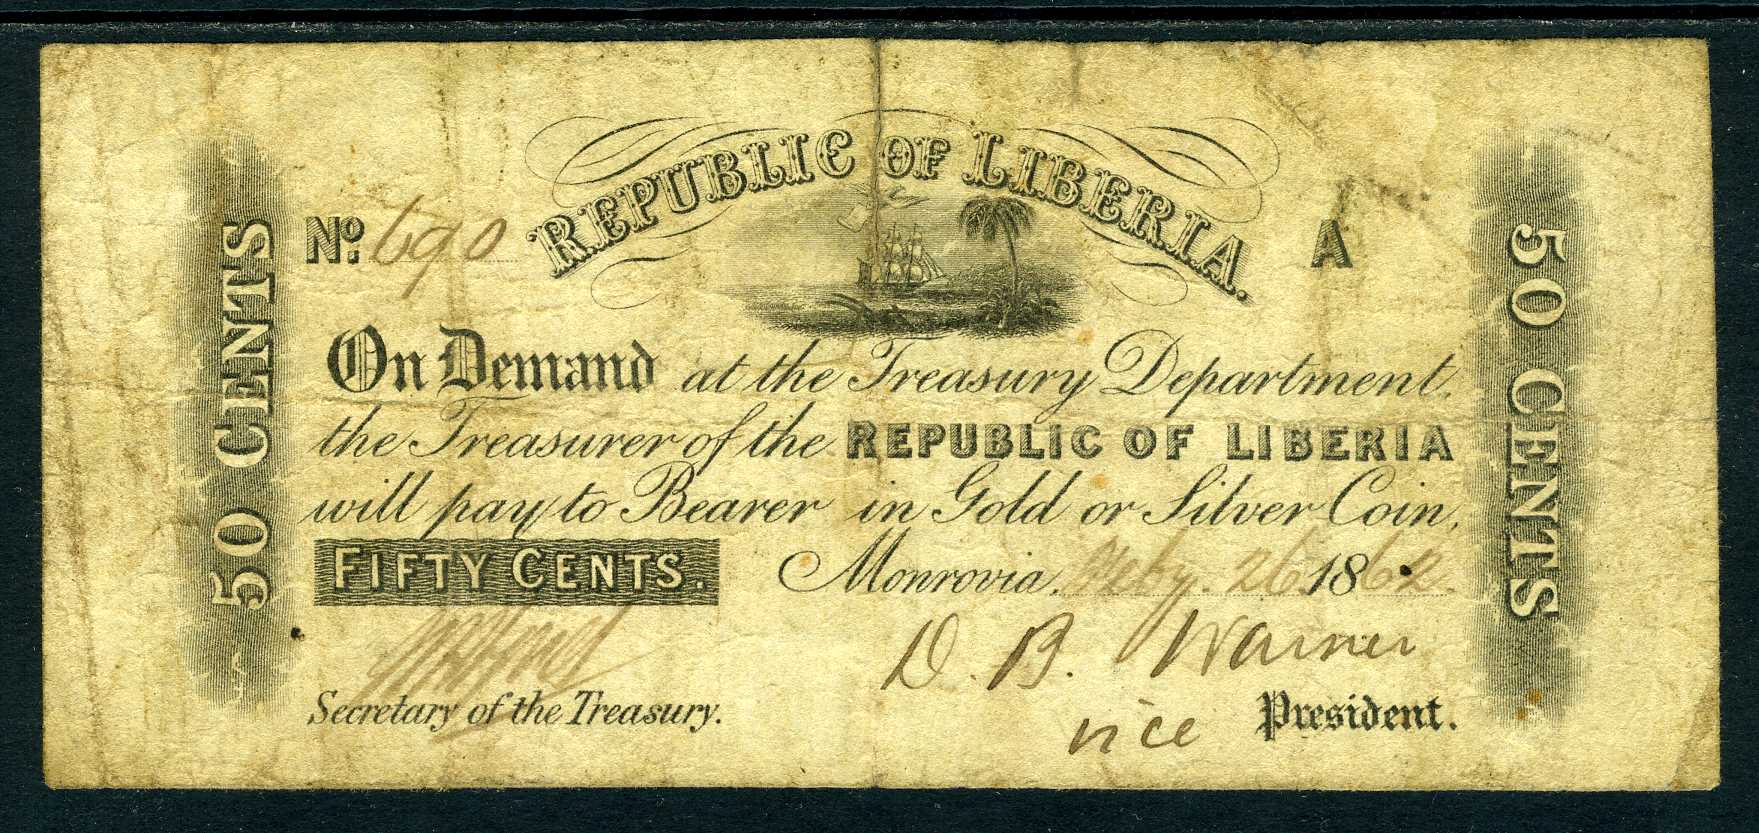 REPUBLIC OF LIBERIA.
No: 690
A
50 CENTS
50 CENTS
On Demand at the Treasury Department,
the Treasurer of the REPUBLIC OF LIBERIA
will pay to Bearer in Gold or Silver Coin,
FIFTY CENTS. Monrovia, Feby. 26 1862.
D. B. Warner
Secretary of the Treasury. vice President.